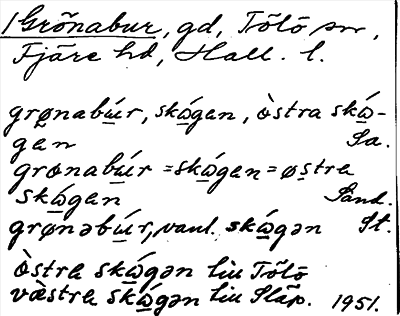 1 Grönabur, gd, Tölö sn,
Fjäre hd, Hall. l.
grønabú̱r, skó̱gen, òstra skó̱-
gen Sa.
grønabú̱r = skó̱gen = østra
skó̱gen Sand.
grønəbú̱r, vanl. skó̱gən St.
òstra skó̱gən liu Tölö
vàstra skó̱gən liu Släp. 1951.